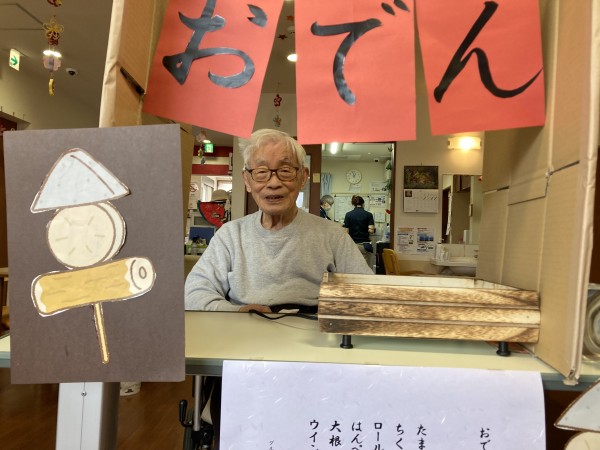 おでん
おで
たま
ちく
ロール
はんぺ
大根
ウイン